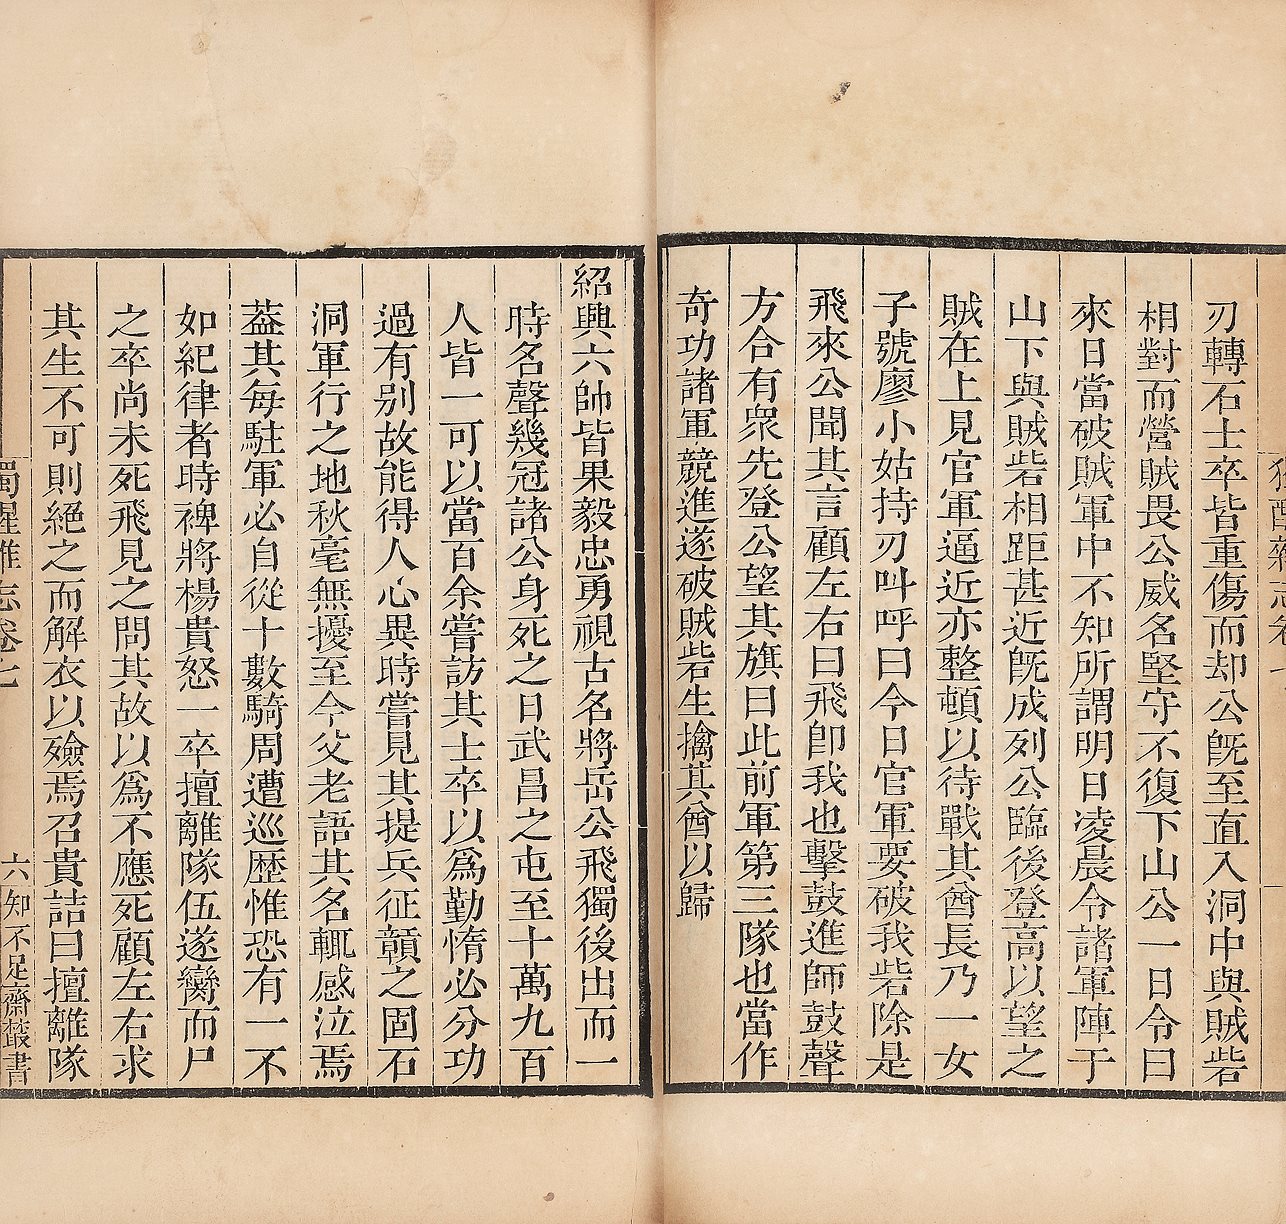 刃轉石士卒皆重傷而却公旣至直入洞中與賊砦
相對而營賊畏公威名堅守不復下山公一日令曰
來日當破賊軍中不知所謂明日凌晨令諸軍陣于
山下與賊砦相距甚近旣成列公臨後登高以望之
賊在上見官軍逼近亦整頓以待戰其酋長乃一女
子號廖小姑持刃叫呼曰今日官軍要破我砦除是
飛來公聞其言顧左右曰飛卽我也擊鼓進師鼓聲
方合有衆先登公望其旗曰此前軍第三隊也當作
奇功諸軍競進遂破賊砦生擒其酋以歸
紹興六帥皆果毅忠勇視古名將岳公飛獨後出而一
時名聲幾冠諸公身死之日武昌之屯至十萬九百
人皆一可以當百余嘗訪其士卒以爲勤惰必分功
過有別故能得人心異時嘗見其提兵征贛之固石
洞軍行之地秋毫無擾至今父老語其名輒感泣焉
葢其每駐軍必自從十數騎周遭巡歷惟恐有一不
如紀律者時裨將楊貴怒一卒擅離隊伍遂臠而尸
之卒尚未死飛見之問其故以爲不應死顧左右求
其生不可則絕之而解衣以殮焉召貴詰曰擅離隊
獨醒雜志卷七
六
知不足齋叢書